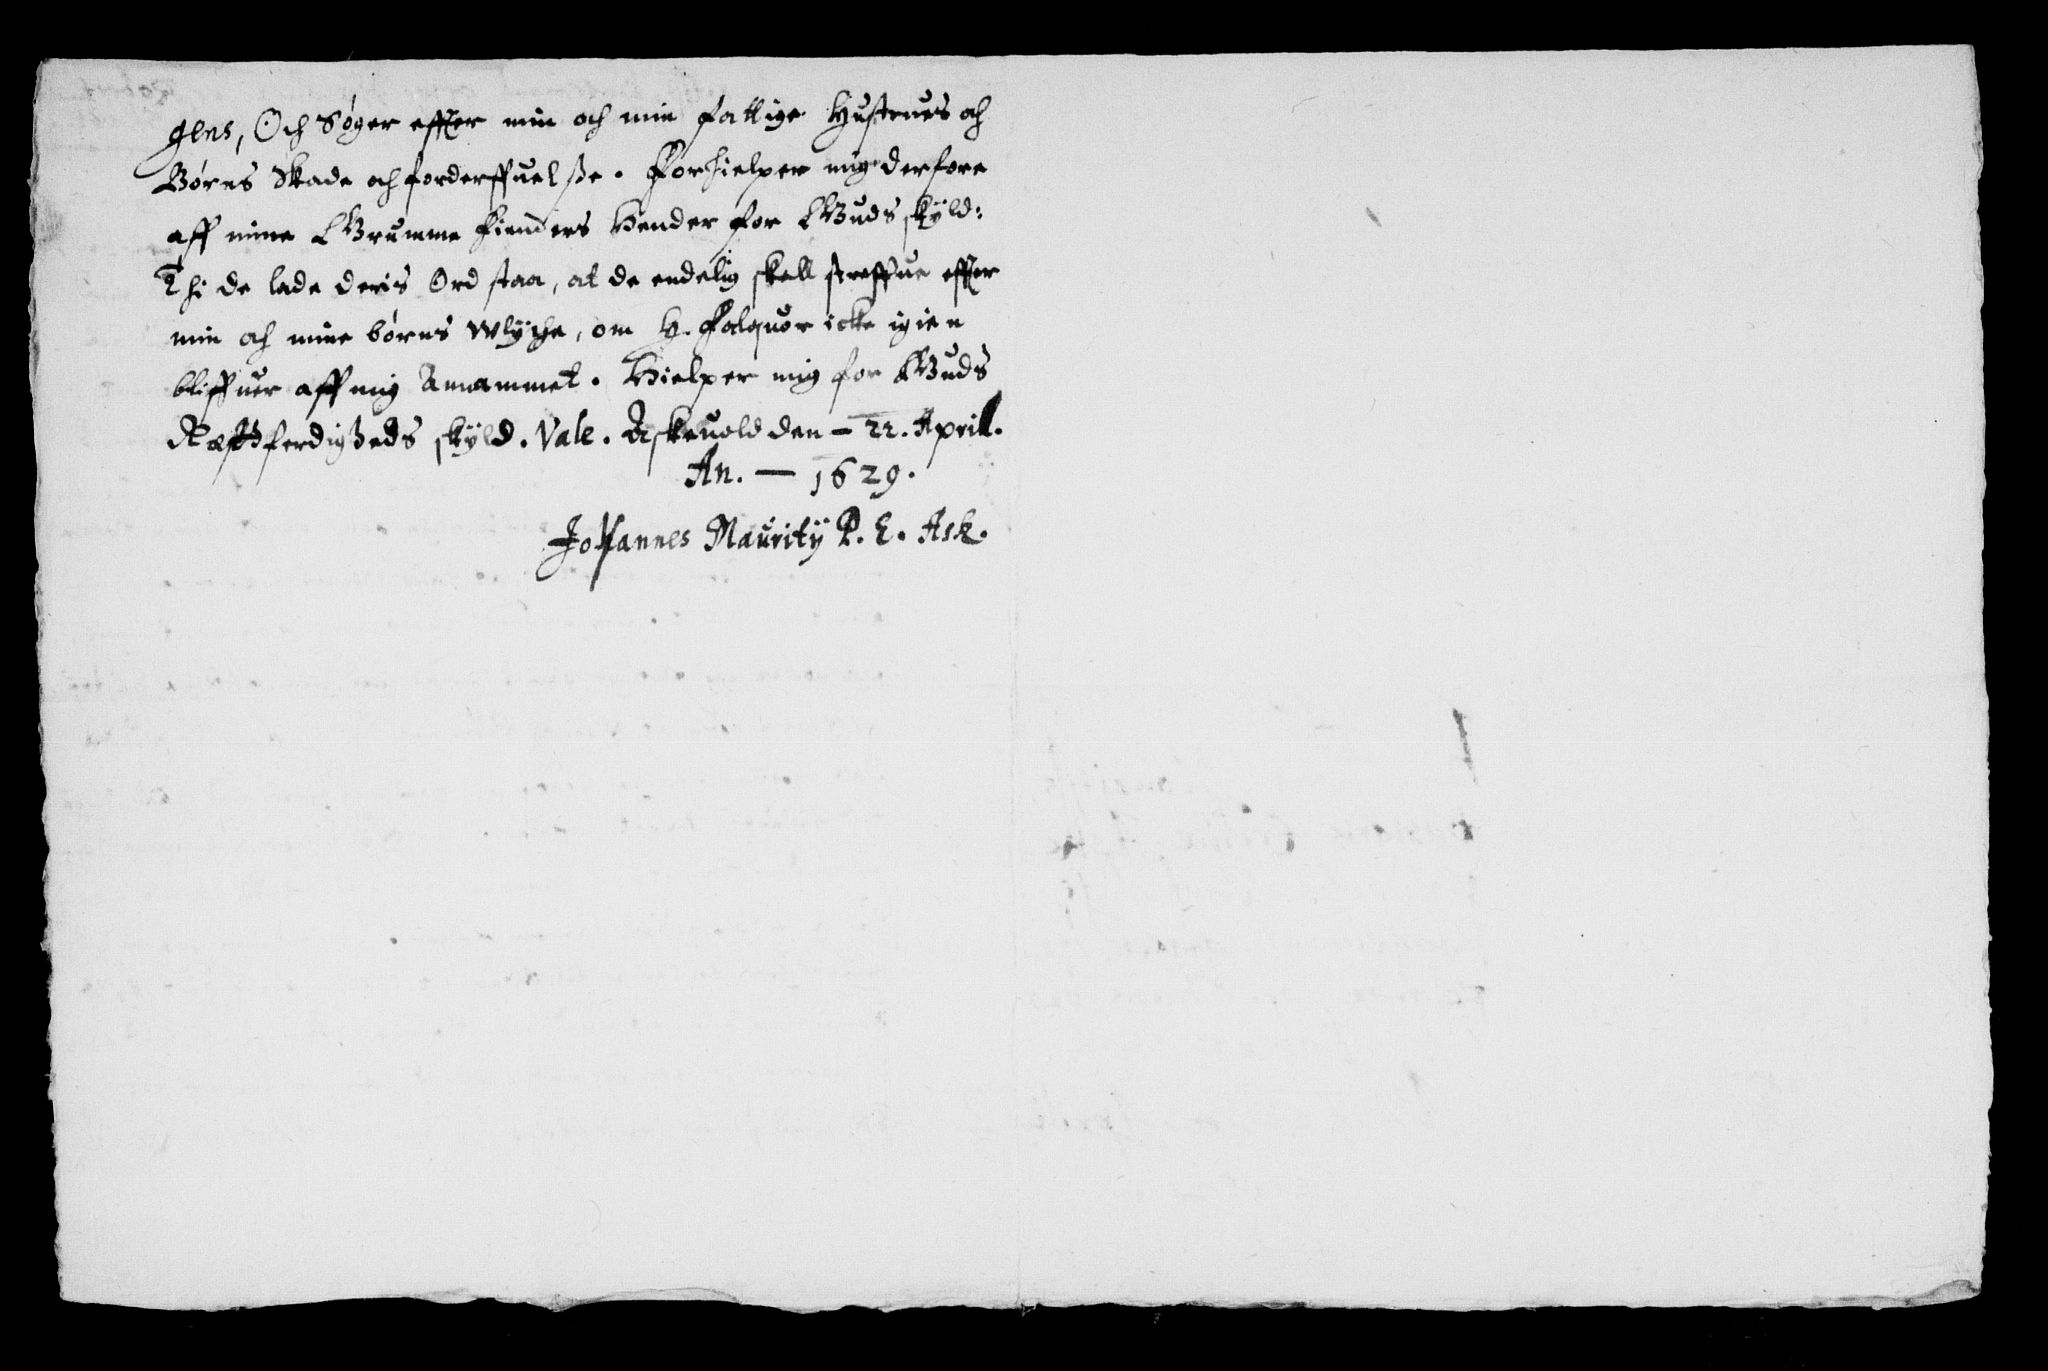 gens, Och Søger effter min och min fattige Hustrues och
Børns Skade och forderffuelsse. Forhielper mig derfore
aff mine Grumme Fienders Hender for Guds skyld:
Thi de lade deris Ord staa, at de endelig skall streffue effter
min och mine børns wlyche, om H. Falquor icke igien
bliffuer aff mig Amammet. Hielper mig for Guds
Retferdigheds skyld. Vale. Askeuold den - 22. April.
An. — 1629.
Johannes Maurity P. E. Ask.